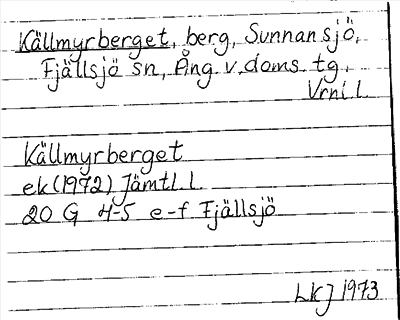 Källmyrberget, berg, Sunnansjö,
Fjällsjö sn, Ång. v. doms. tg.
Vrnl. l.
Källmyrberget
ek (1972) Jämtl. l.
20 G 4-5 e-f Fjällsjö
LKJ 1973